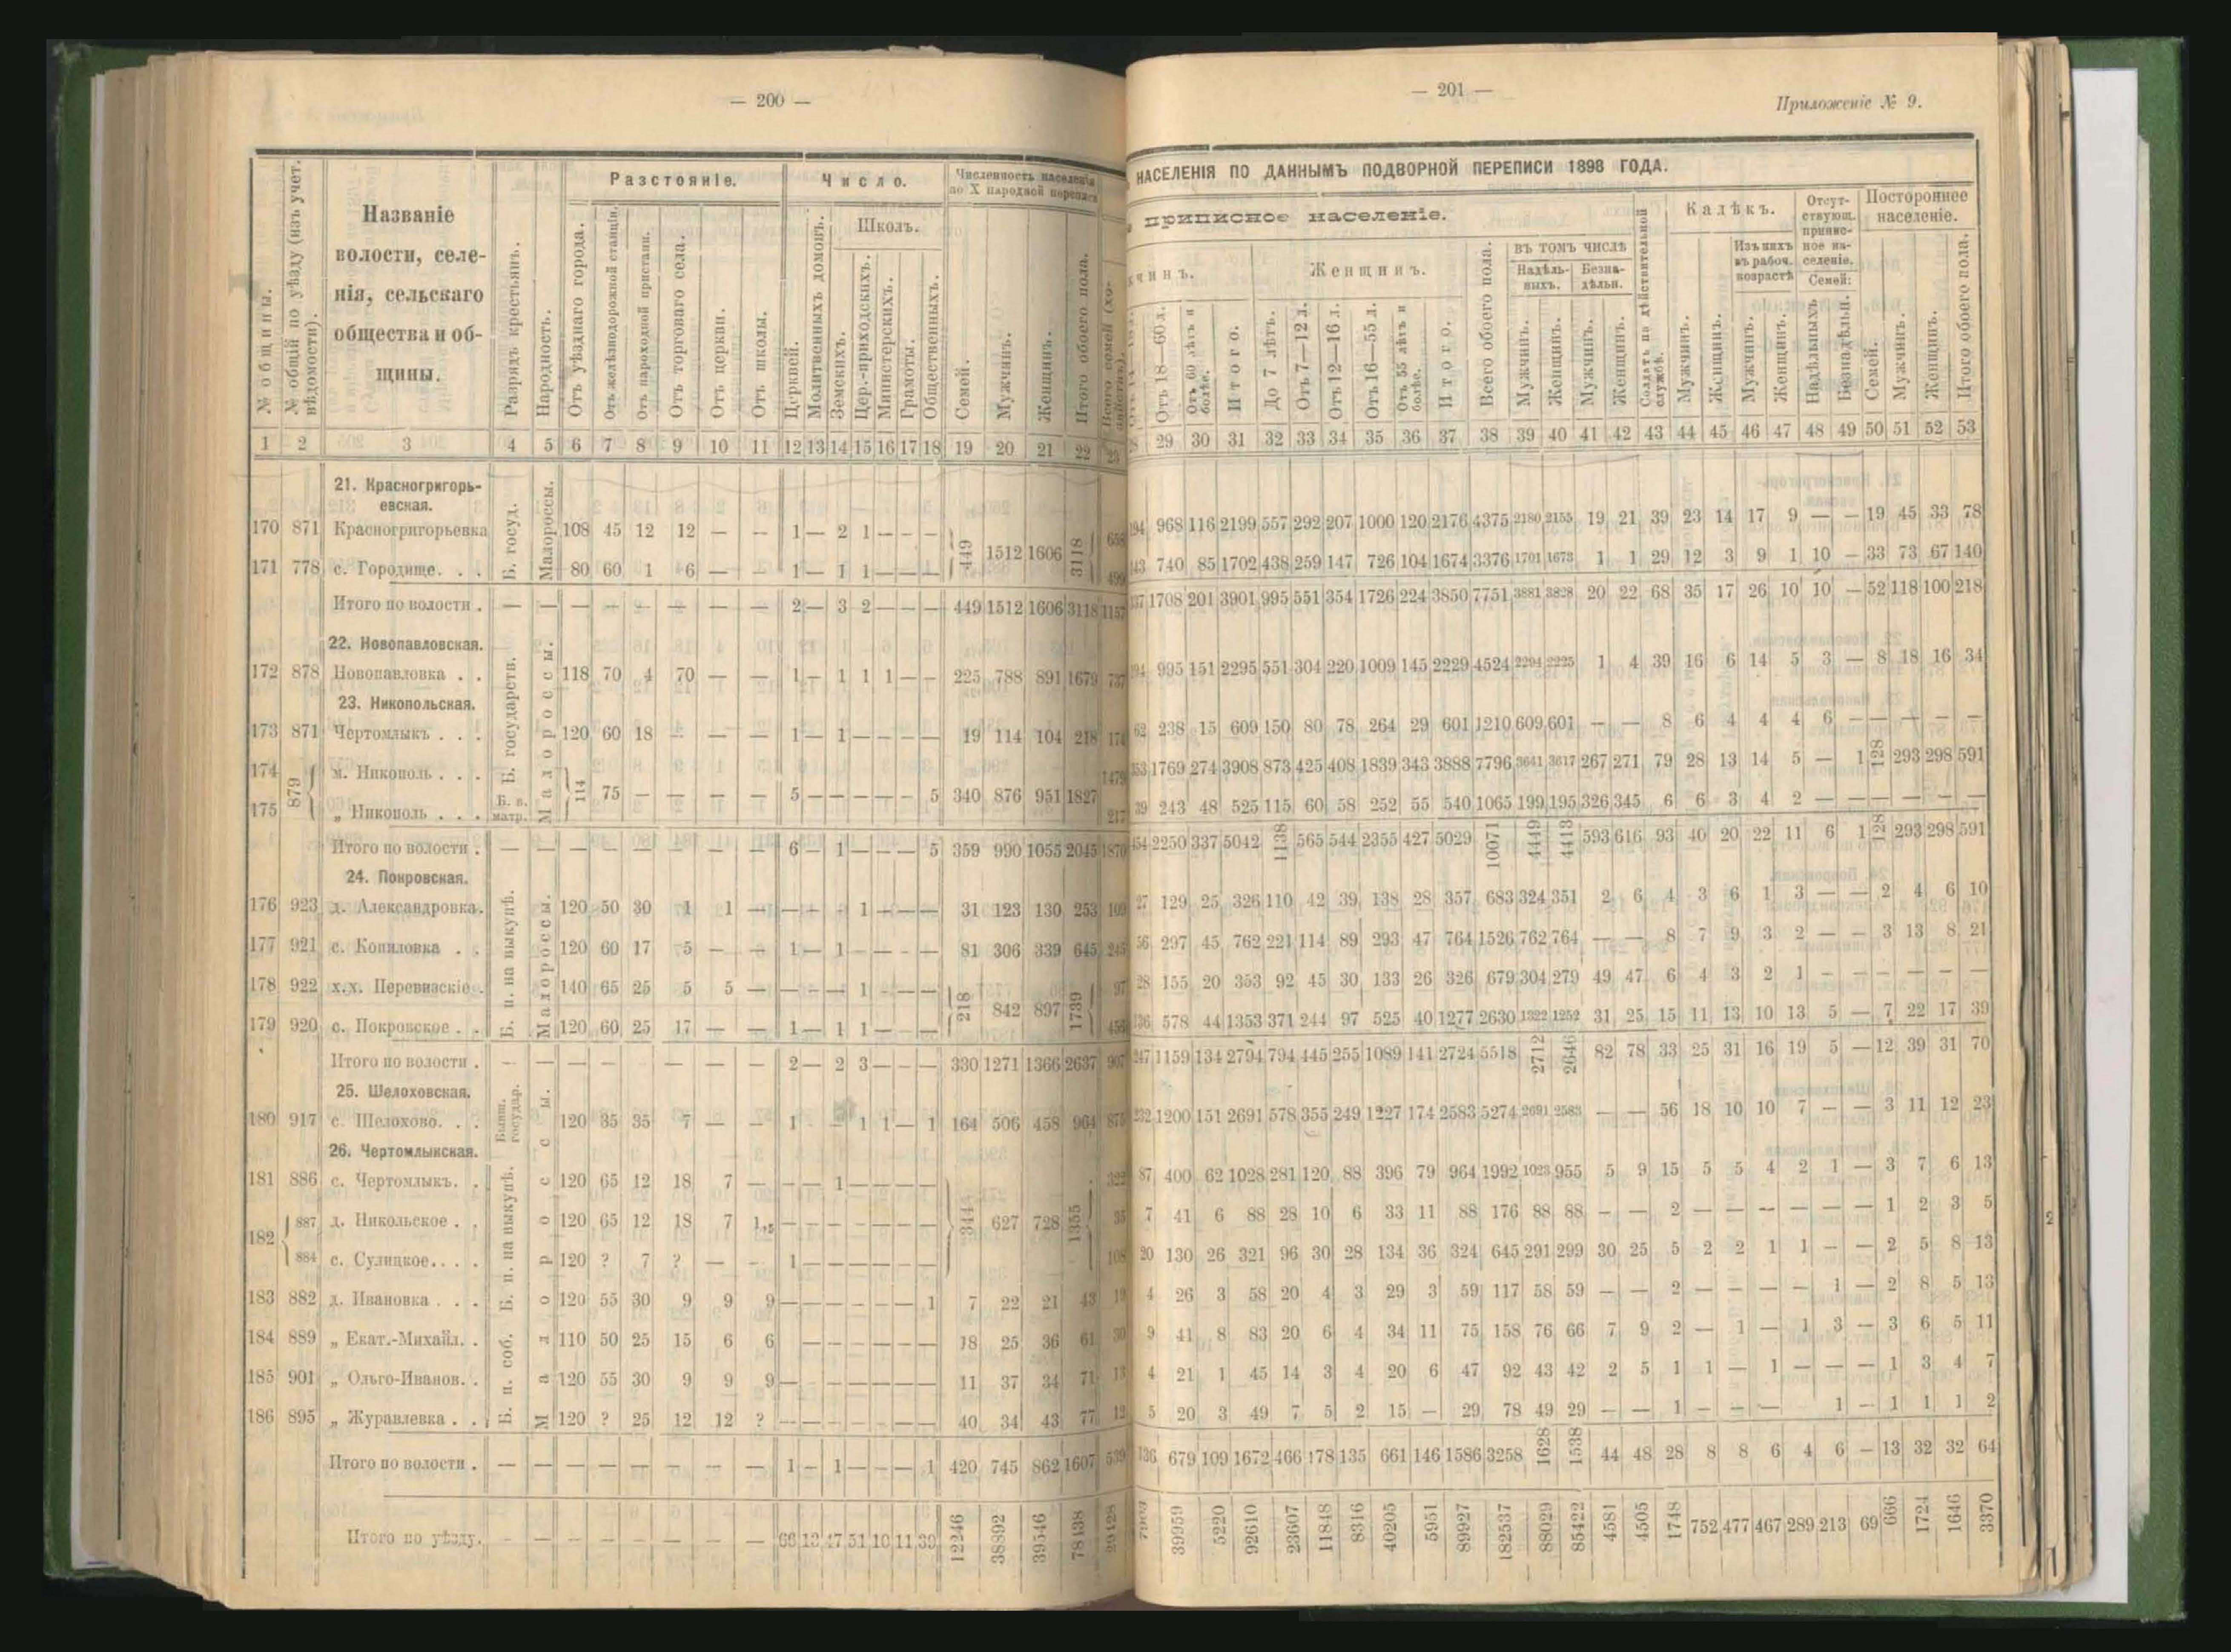 — 200 —
Разстоянiе.
Число.
Численность населенiя
по X народной переписи
Названiе
волости, селе-
нiя, сельскаго
общества и об-
щины.
№ общины.
№ общiй по уѣзду (изъ учет.
вѣдомости).
Разрядъ крестьянъ.
Народность.
Отъ уѣзднаго города.
Отъ желѣзнодорожной станцiи.
Отъ пароходной пристани.
Отъ торговаго села.
Отъ церкви.
Отъ школы.
Церквей.
Молитвенныхъ домовъ.
Школъ.
Земскихъ.
Цер.-приходскихъ.
Министерскихъ.
Грамоты.
Общественныхъ.
Семей.
Мужчинъ.
Женщинъ.
Итого обоего пола.
1 2 3 4 5 6 7 8 9 10 11 12 13 14 15 16 17 18 19 20 21 22 23
21. Красногригорь-
евская.
Б. госуд.
Малороссы.
170 871 Красногригорьевка 108 45 12 12 — — 1 — 2 1 — — —
449 1512 1606 3118
171 778 с. Городище. . . 80 60 1 6 — — 1 — 1 1 — — —
Итого по волости . — — — — — — — — 2 — 3 2 — — — 449 1512 1606 3118 1157
22. Новопавловская.
Б. государств.
Малороссы.
172 878 Новопавловка . . 118 70 4 70 — — 1 — 1 1 1 — — 225 788 891 1679 737
23. Никопольская.
173 871 Чертомлыкъ . . . 120 60 18 — — — 1 — 1 — — — — 19 114 104 218 174
174 879 м. Никополь . . . 1479
114 75 — — — — 5 — — — — — 5 340 876 951 1827
175 „ Никополь . . . Б. в. матр. 217
Итого по волости . — — — — — — — — 6 — 1 — — — 5 359 990 1055 2045 1870
24. Покровская.
Б. п. на выкупѣ.
Малороссы.
176 923 д. Александровка. 120 50 30 1 1 — — — — 1 — — — 31 123 130 253 109
177 921 с. Копиловка . . 120 60 17 5 — — 1 — 1 — — — — 81 306 339 645 245
178 922 х.х. Перевизскiе . 140 65 25 5 5 — — — — 1 — — — 97
218 842 897 1739
179 920 с. Покровское . . 120 60 25 17 — — 1 — 1 1 — — — 456
Итого по волости . — — — — — — — — 2 — 2 3 — — — 330 1271 1366 2637 907
25. Шелоховская.
Бывш. государ.
180 917 с. Шелохово. . . 120 35 35 7 — — 1 — — 1 1 — 1 164 506 458 964 875
26. Чертомлыкская.
Б. п. на выкупѣ.
Малороссы.
181 886 с. Чертомлыкъ. . 120 65 12 18 7 — — — 1 — — — — 322
182 887 д. Никольское . . 120 65 12 18 7 1,5 — — — — — — — 344 627 728 1355 35
884 с. Сулицкое. . . . 120 ? 7 ? — — 1 — — — — — — 108
183 882 д. Ивановка . . . 120 55 30 9 9 9 — — — — — — 1 7 22 21 43 19
Б. п. соб.
184 889 „ Екат.-Михайл. . 110 50 25 15 6 6 — — — — — — 18 25 36 61 30
185 901 „ Ольго-Иванов. . 120 55 30 9 9 9 — — — — — — — 11 37 34 71 13
186 895 „ Журавлевка . . 120 ? 25 12 12 ? — — — — — — — 40 34 43 77 12
Итого по волости . — — — — — — — — 1 — 1 — — — 1 420 745 862 1607 539
Итого по уѣзду. — — — — — — — — 47 51 10 11 39 12246 38892 39546 78438
— 201 —
Приложенiе № 9.
НАСЕЛЕНIЯ ПО ДАННЫМЪ ПОДВОРНОЙ ПЕРЕПИСИ 1898 ГОДА.
приписное населенiе.
Женщинъ.
Отъ 18—60 л.
Отъ 60 лѣтъ и болѣе.
Итого.
До 7 лѣтъ.
Отъ 7—12 л.
Отъ 12—16 л.
Отъ 16—55 л.
Отъ 55 лѣтъ и болѣе.
Итого.
Всего обоего пола.
въ томъ числѣ
Надѣль-
ныхъ.
Безна-
дѣльн.
Мужчинъ.
Женщинъ.
Мужчинъ.
Женщинъ.
Солдатъ на дѣйствительной
службѣ.
Калѣкъ.
Мужчинъ.
Женщинъ.
Изъ нихъ
въ рабоч.
возрастѣ
Мужчинъ.
Женщинъ.
Отсут-
ствующ.
припис-
ное на-
селенiе.
Семей:
Надѣльныхъ
Безнадѣльн.
Постороннее
населенiе.
Семей.
Мужчинъ.
Женщинъ.
Итого обоего пола.
29 30 31 32 33 34 35 36 37 38 39 40 41 42 43 44 45 46 47 48 49 50 51 52 53
194 968 116 2199 557 292 207 1000 120 2176 4375 2180 2155 19 21 39 23 14 17 9 — — 19 45 33 78
143 740 85 1702 438 259 147 726 104 1674 3376 1701 1673 1 1 29 12 3 9 1 10 — 33 73 67 140
1708 201 3901 995 551 354 1726 224 3850 7751 3881 3828 20 22 68 35 17 26 10 10 — 52 118 100 218
194 995 151 2295 551 304 220 1009 145 2229 4524 2294 2225 1 4 39 16 6 14 5 3 — 8 18 16 34
62 238 15 609 150 80 78 264 29 601 1210 609 601 — — 8 6 4 4 4 6 — — — — —
1769 274 3908 873 425 408 1839 343 3888 7796 3641 3617 267 271 79 28 13 14 5 — 1 128 293 298 591
39 243 48 525 115 60 58 252 55 540 1065 199 195 326 345 6 6 3 4 2 — — — — — —
2250 337 5042 1138 565 544 2355 427 5029 10071 4449 4413 593 616 93 40 20 22 11 6 1 128 293 298 591
27 129 25 326 110 42 39 138 28 357 683 324 351 2 6 4 3 6 1 3 — — 2 4 6 10
56 297 45 762 221 114 89 293 47 764 1526 762 764 — — 8 7 9 3 2 — — 3 13 8 21
28 155 20 353 92 45 30 133 26 326 679 304 279 49 47 6 4 3 2 1 — — — — — —
136 578 44 1353 371 244 97 525 40 1277 2630 1322 1252 31 25 15 11 13 10 13 5 — 7 22 17 39
247 1159 134 2794 794 445 255 1089 141 2724 5518 2712 2646 82 78 33 25 31 16 19 5 — 12 39 31 70
232 1200 151 2691 578 355 249 1227 174 2583 5274 2691 2583 — — 56 18 10 10 7 — — 3 11 12 23
87 400 62 1028 281 120 88 396 79 964 1992 1023 955 5 9 15 5 5 4 2 1 — 3 7 6 13
7 41 6 88 28 10 6 33 11 88 176 88 88 — — 2 — — — — — — 1 2 3 5
20 130 26 321 96 30 28 134 36 324 645 291 299 30 25 5 2 2 1 1 — — 2 5 8 13
4 26 3 58 20 4 3 29 3 59 117 58 59 — — 2 — — — — 1 — 2 8 5 13
9 41 8 83 20 6 4 34 11 75 158 76 66 7 9 2 — 1 — 1 3 — 3 6 5 11
4 21 1 45 14 3 4 20 6 47 92 43 42 2 5 1 1 — 1 — — — 1 3 4 7
5 20 3 49 7 5 2 15 — 29 78 49 29 — — 1 — — — 1 — 1 1 1 2
136 679 109 1672 466 178 135 661 146 1586 3258 1628 1538 44 48 28 8 8 6 4 6 — 13 32 32 64
39959 5220 92610 23607 11848 8316 40205 5951 89927 182537 88029 85422 4581 4505 1748 752 477 467 289 213 69 666 1724 1646 3370